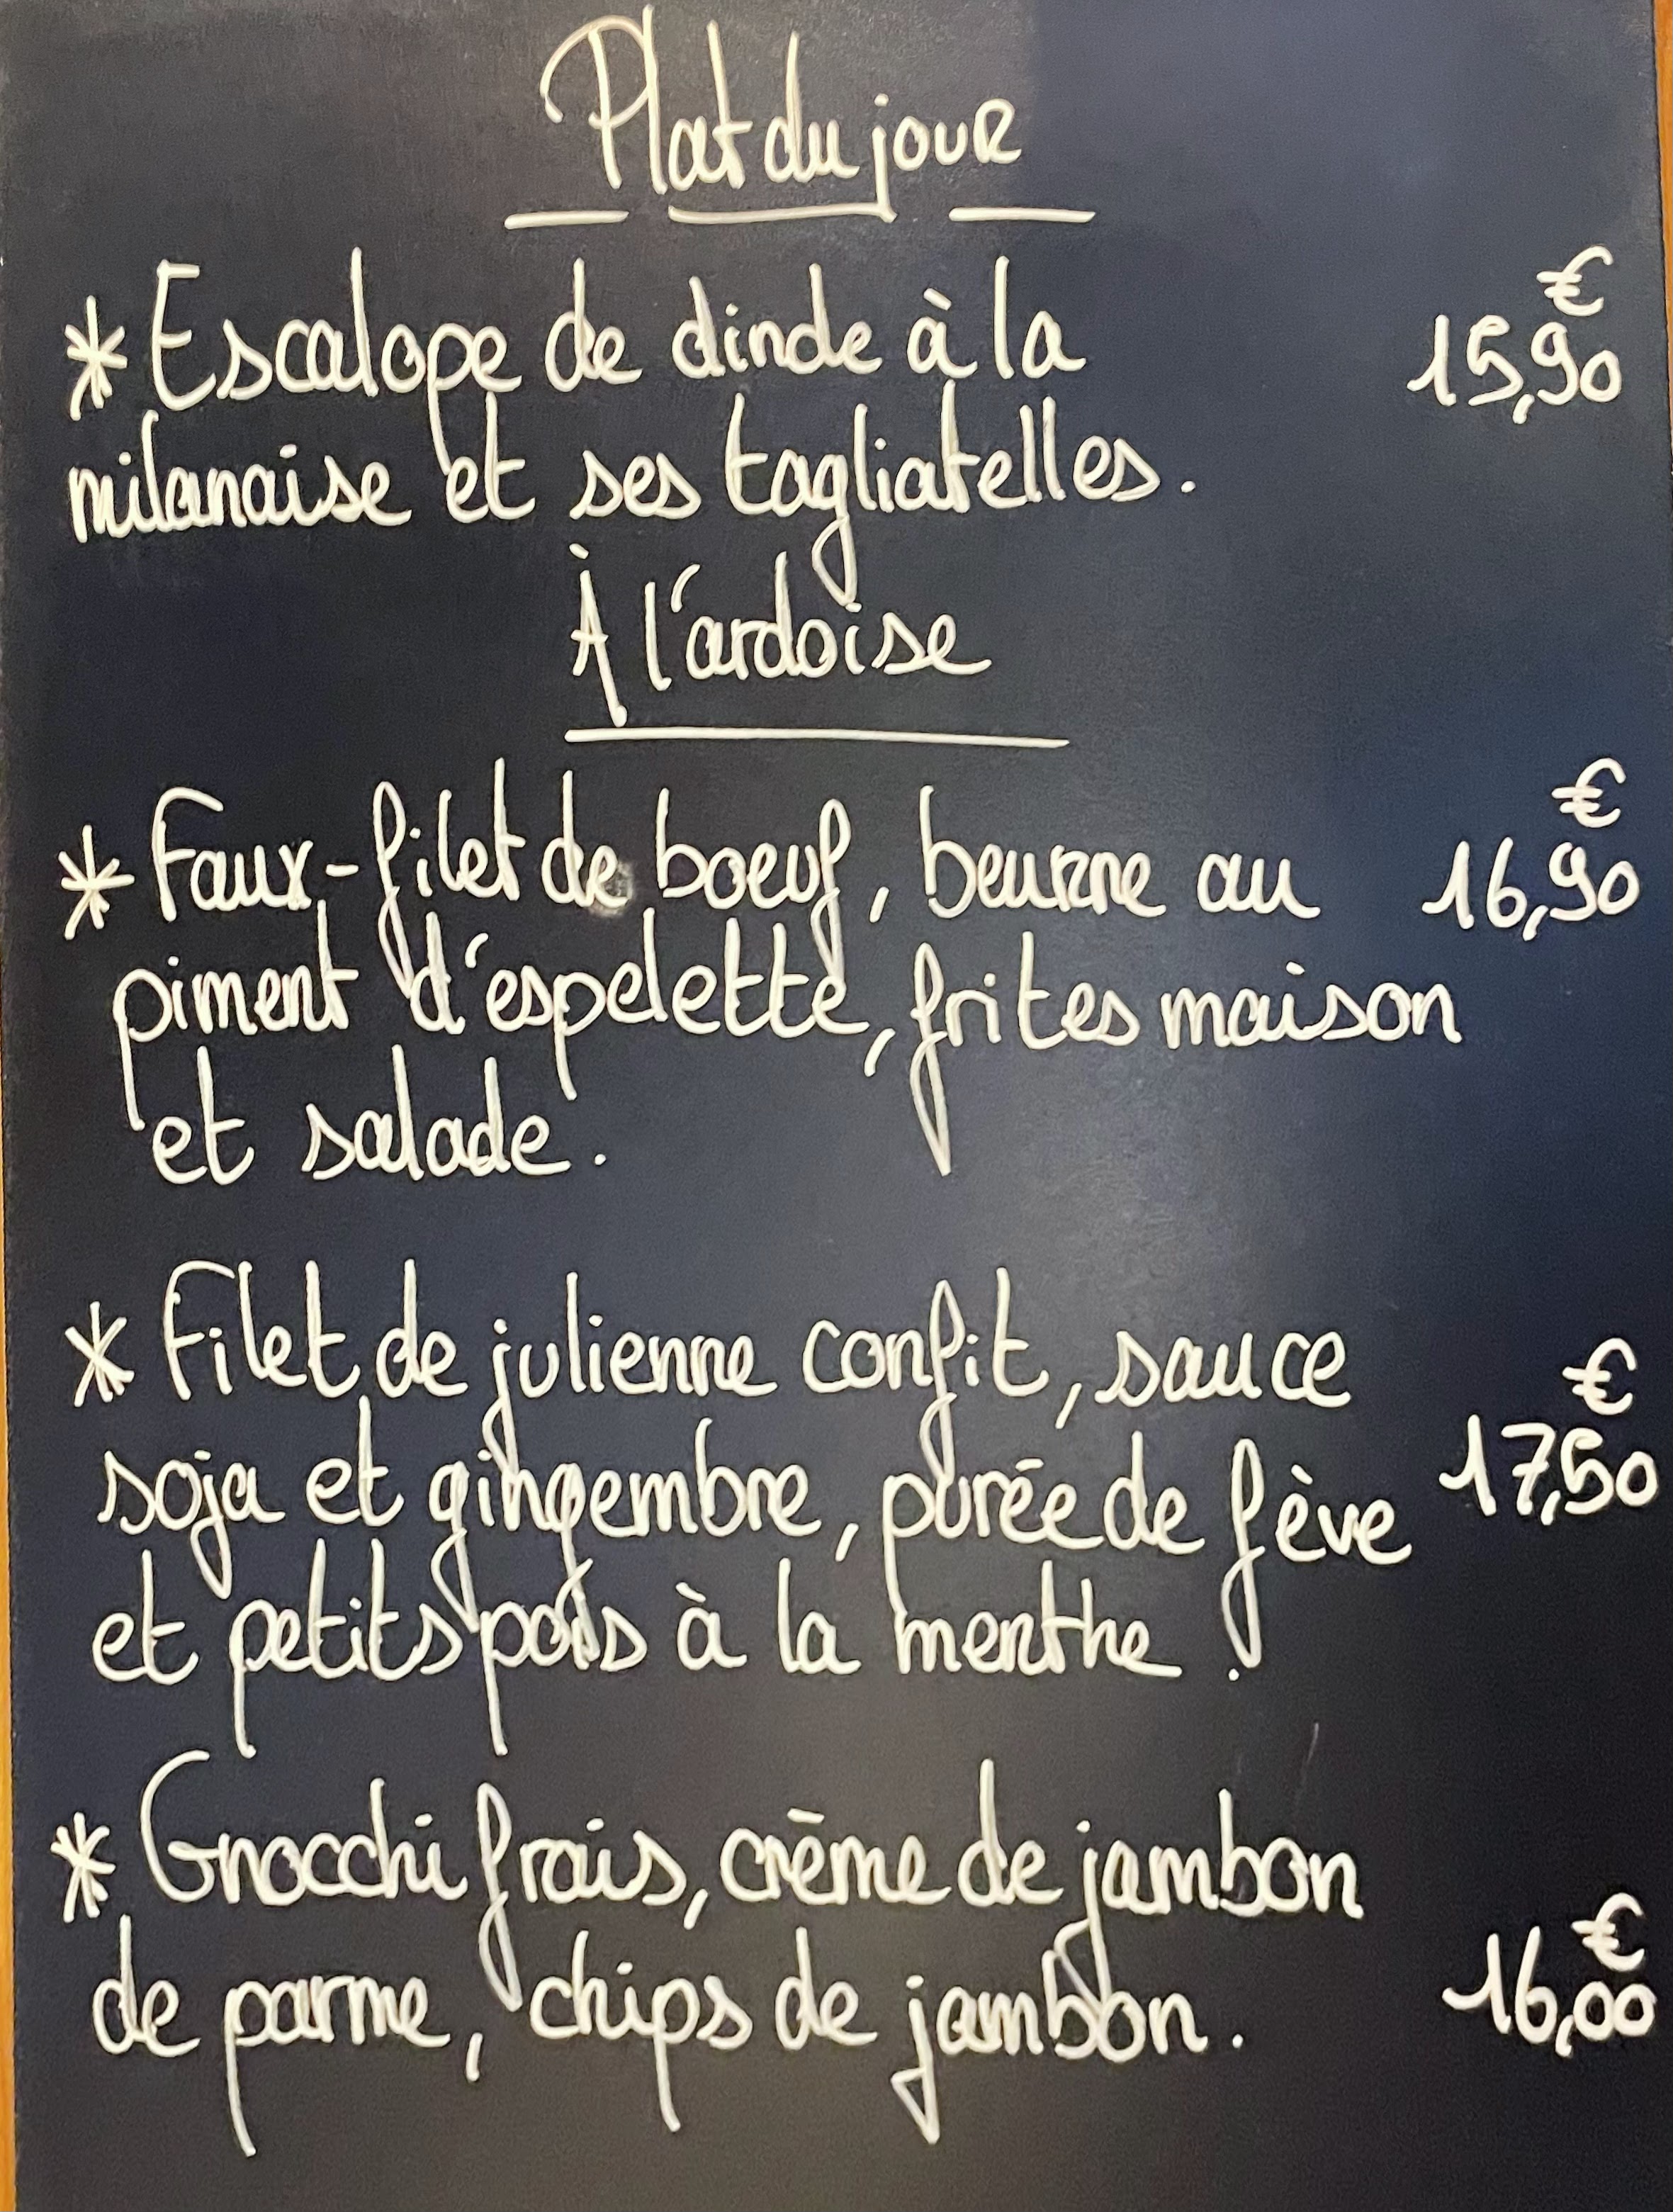 Plat du jour
* Escalope de dinde à la
€
15,90
milanaise et ses tagliatelles.
À l'ardoise
* Faux-filet de boeuf, beurre au
€
16,90
piment d'espelette, frites maison
et salade.
* Filet de julienne confit, sauce
soja et gingembre, purée de fève
€
17,50
et petits pois à la menthe.
* Gnocchi frais, crème de jambon
de parme, chips de jambon.
€
16,00